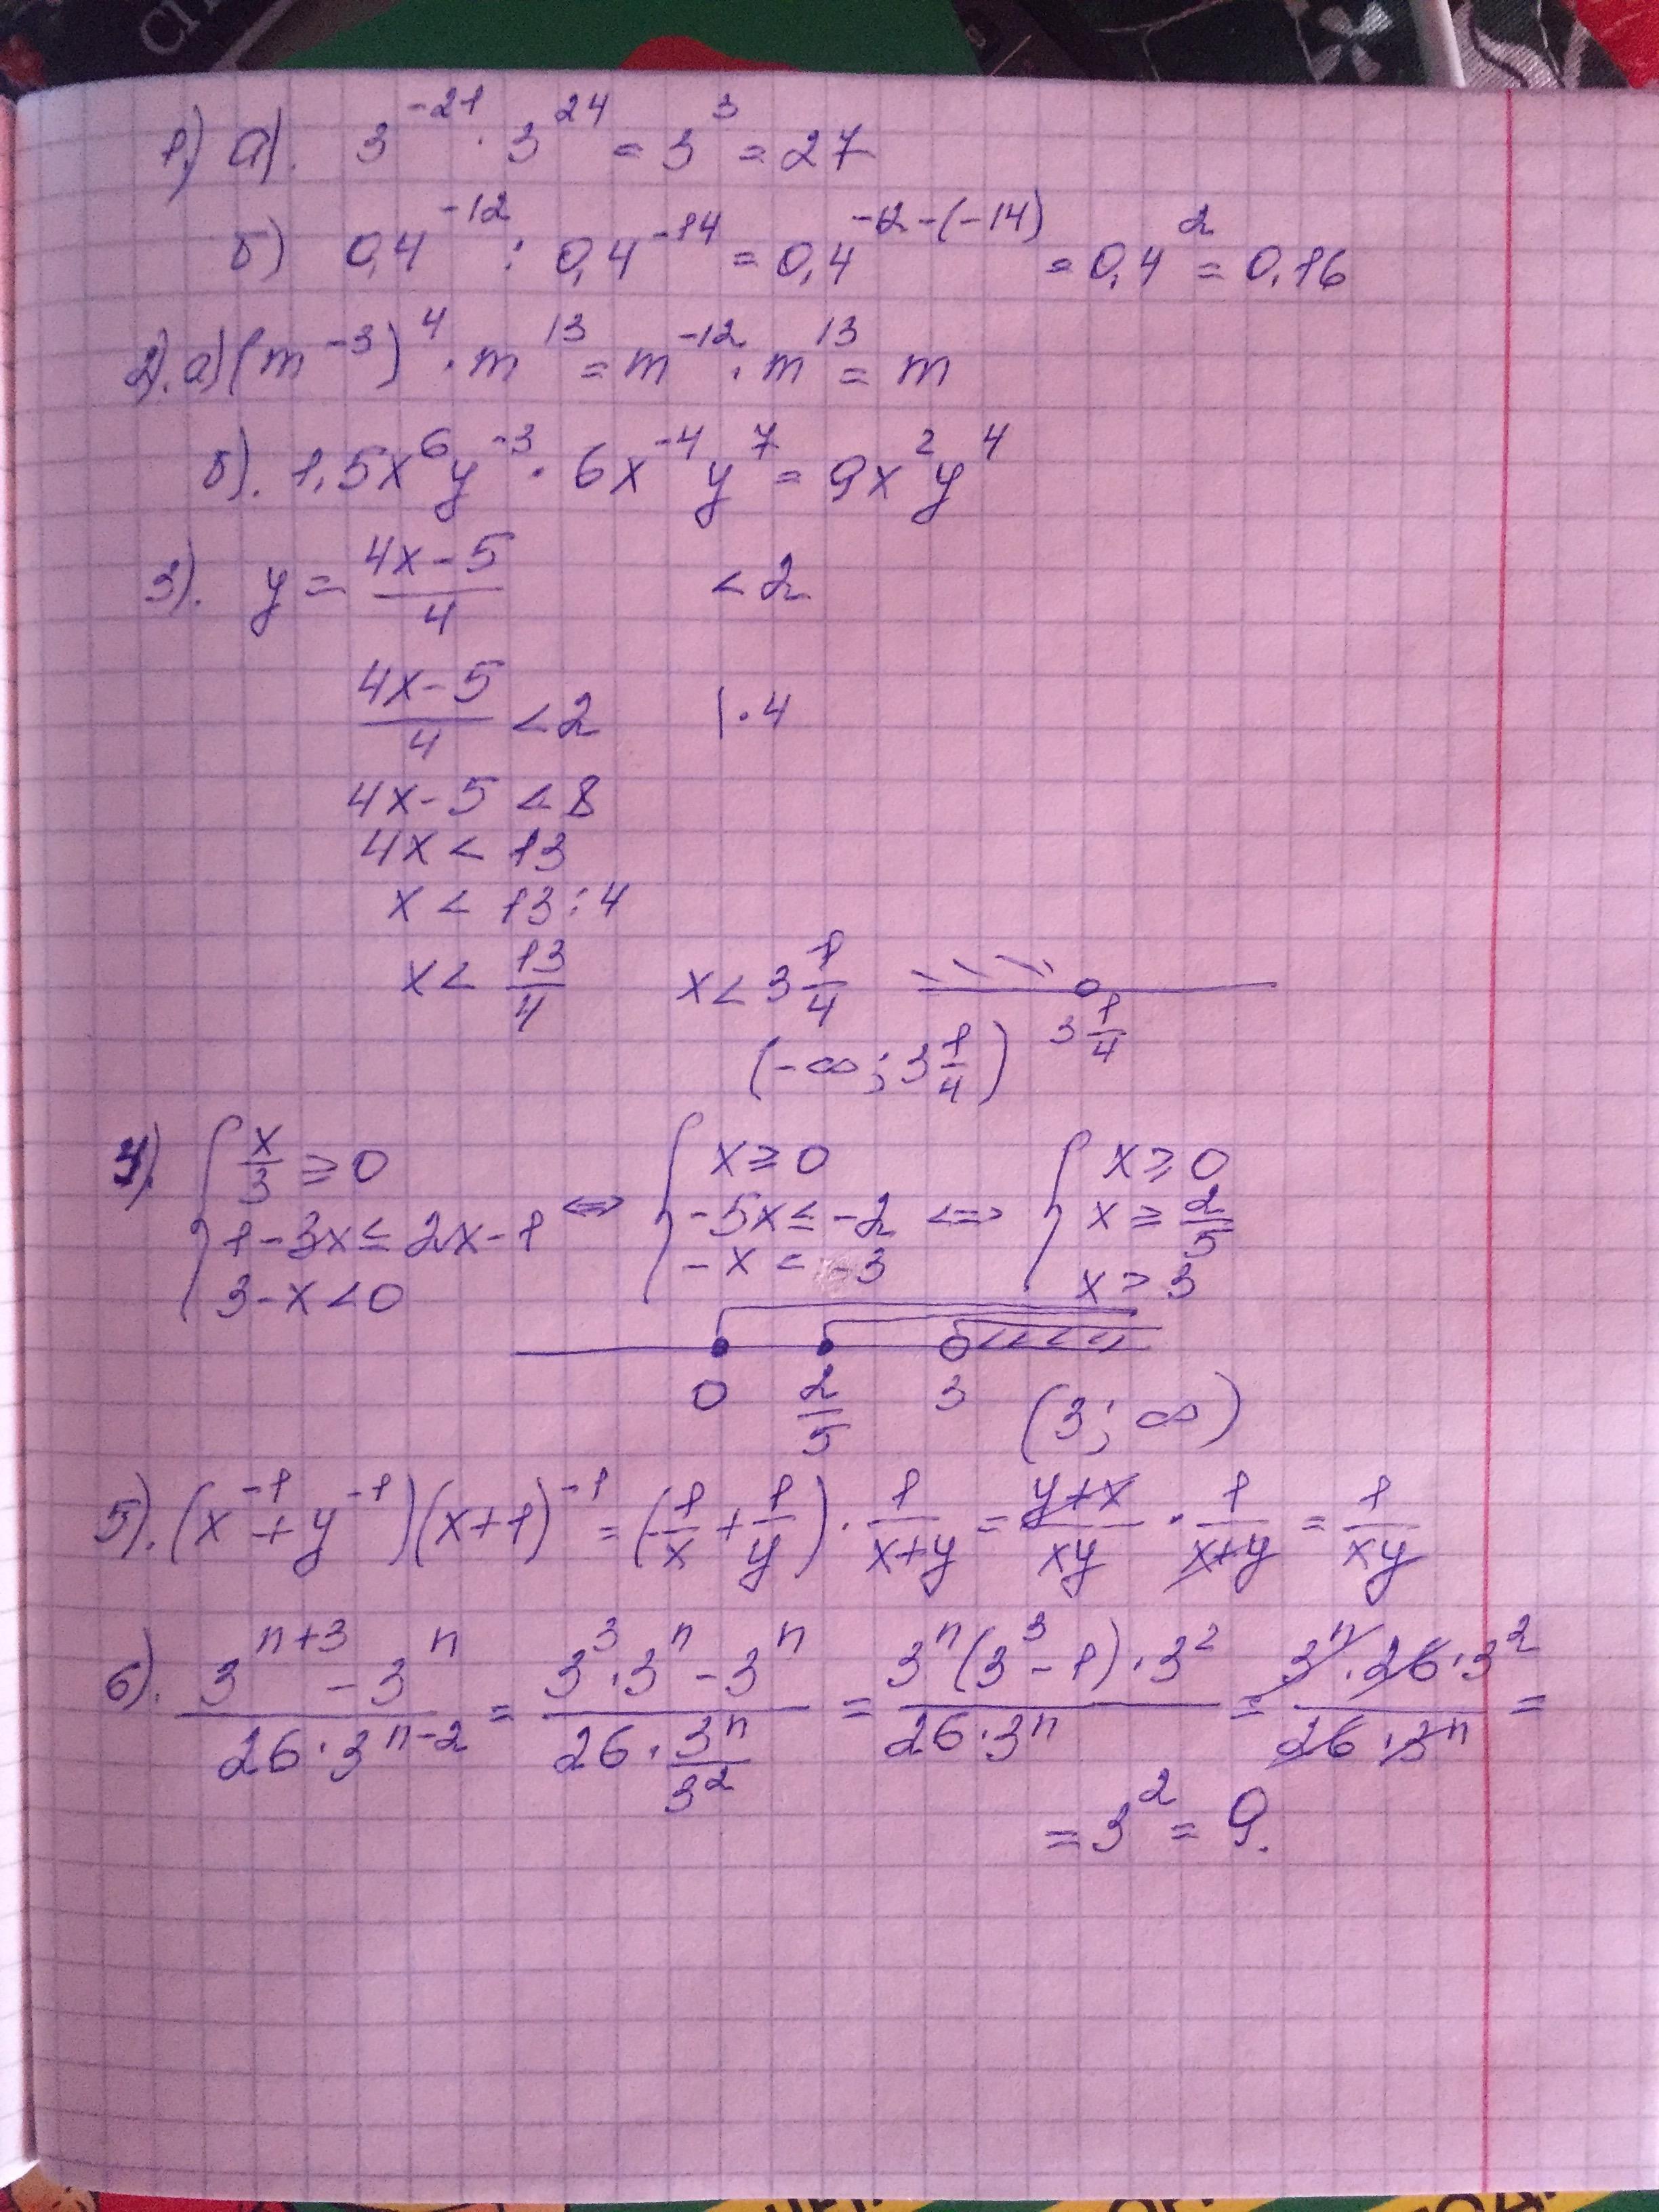 1) а). 3^{-21} · 3^{24} = 3^3 = 27
б) 0,4^{-12} : 0,4^{-14} = 0,4^{-12-(-14)} = 0,4^2 = 0,16
2). а) (m^{-3})^4 · m^{13} = m^{-12} · m^{13} = m
б). 1,5x^6y^{-3} · 6x^{-4}y^7 = 9x^2y^4
3). y = \frac{4x-5}{4} < 2
\frac{4x-5}{4} < 2 | · 4
4x - 5 < 8
4x < 13
x < 13 : 4
x < \frac{13}{4} x < 3\frac{1}{4} 3\frac{1}{4}
(-∞; 3\frac{1}{4})
4). { \frac{x}{3} ≥ 0 ⇔ { x ≥ 0 ⇔ { x ≥ 0
1 - 3x ≤ 2x - 1 -5x ≤ -2 x ≥ \frac{2}{5}
3 - x < 0 -x < -3 x > 3
0 \frac{2}{5} 3 (3; ∞)
5). (x^{-1} + y^{-1})(x+1)^{-1} = (\frac{1}{x} + \frac{1}{y}) · \frac{1}{x+y} = \frac{y+x}{xy} · \frac{1}{x+y} = \frac{1}{xy}
6). \frac{3^{n+3} - 3^n}{26 · 3^{n-2}} = \frac{3^3 · 3^n - 3^n}{26 · \frac{3^n}{3^2}} = \frac{3^n(3^3 - 1) · 3^2}{26 · 3^n} = \frac{3^n · 26 · 3^2}{26 · 3^n} =
= 3^2 = 9.